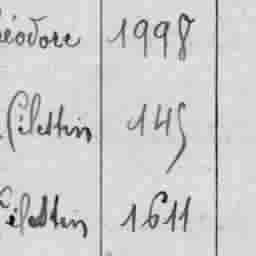 éodore 1998
Célestin 145
Célestin 1611